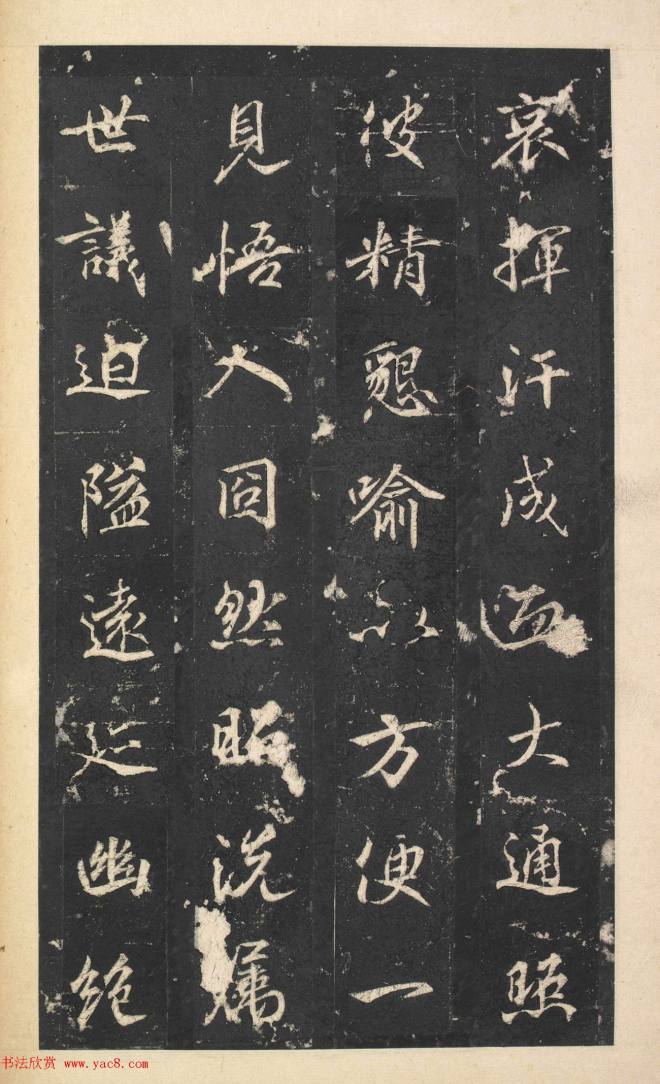 哀揮汗成大通照
彼精懇喻以方便一
見悟入囧然昭洗屬
世議迫隘遠幽絶
书法欣赏 www.yac8.com